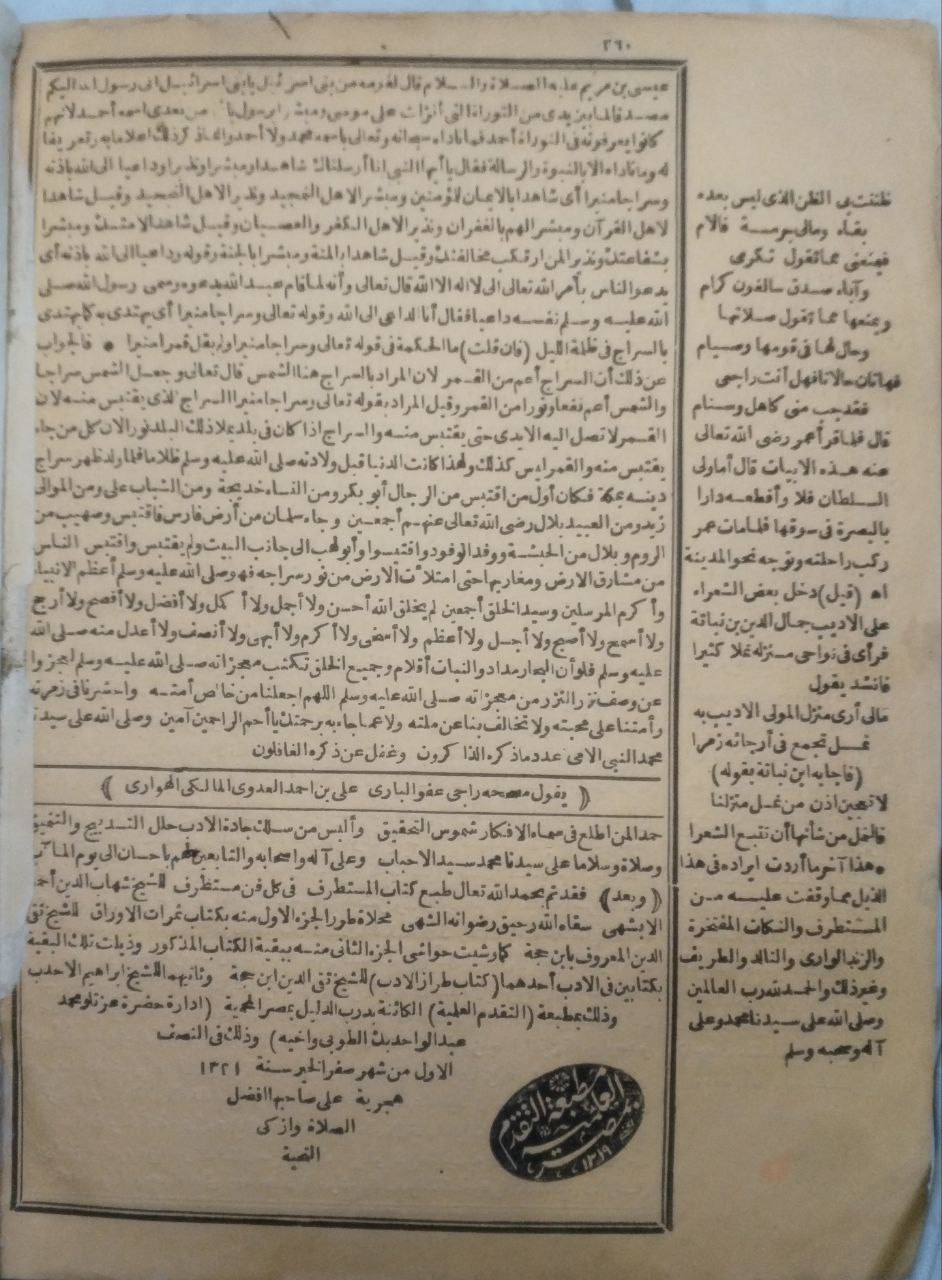 ٢٦٠
عيسى بن مريم عليه الصلاة والسلام قال لقومه من بنى اسرائيل يابنى اسرائيل انى رسول الله اليكم
مصدقا لما بين يدى من التوراة التى أنزلت على موسى ومبشرا برسول يأتى من بعدى اسمه أحمد لانهم
كانوا يعرفونه فى التوراة أحمد فما ناداه سبحانه وتعالى باسمه محمد ولا أحمد وانما ذكر ذلك اعلاما به وتعريفا
له وما ناداه الا بالنبوة والرسالة فقال ياأيها النبى انا أرسلناك شاهدا ومبشرا ونذيرا وداعيا الى الله باذنه
وسراجا منيرا أى شاهدا بالايمان للمؤمنين ومبشرا لاهل التمجيد ونذيرا لاهل التجحيد وقيل شاهدا
لاهل القرآن ومبشرا لهم بالغفران ونذيرا لاهل الكفر والعصيان وقيل شاهدا لامتك ومبشرا
بشفاعتك ونذيرا لمن ارتكب مخالفتك وقيل شاهدا بالمنة ومبشرا بالجنة وقوله وداعيا الى الله باذنه أى
يدعو الناس بأمر الله تعالى الى لا اله الا الله قال تعالى وأنه لما قام عبد الله يدعوه وسمى رسول الله صلى
الله عليه وسلم نفسه داعيا فقال أنا الداعى الى الله وقوله تعالى وسراجا منيرا أى يهتدى به كما يهتدى
بالسراج فى ظلمة الليل (فان قلت) ما الحكمة فى قوله تعالى وسراجا منيرا ولم يقل قمرا منيرا * فالجواب
عن ذلك أن السراج أعم من القمر لان المراد بالسراج هنا الشمس قال تعالى وجعل الشمس سراجا
والشمس أعم نفعا ونورا من القمر وقيل المراد بقوله تعالى وسراجا منيرا السراج الذى يقتبس منه لان
القمر لا تصل اليه الايدى حتى يقتبس منه والسراج اذا كان فى بلد يملا ذلك البلد نورا لان كل من جاء
يقتبس منه والقمر ليس كذلك ولهذا كانت الدنيا قبل ولادته صلى الله عليه وسلم ظلاما فلما ولد ظهر سراج
دينه بمكة فكان أول من اقتبس من الرجال أبو بكر ومن النساء خديجة ومن الشباب على ومن الموالى
زيد ومن العبيد بلال رضى الله تعالى عنهم أجمعين وجاء سلمان من أرض فارس فاقتبس وصهيب من
الروم وبلال من الحبشة ووفد الوفود واقتبسوا وأبو لهب الى جانب البيت ولم يقتبس واقتبس الناس
من مشارق الارض ومغاربها حتى امتلأت الارض من نور سراجه فهو صلى الله عليه وسلم أعظم الانبياء
وأكرم المرسلين وسيد الخلق أجمعين لم يخلق الله أحسن ولا أجمل ولا أكمل ولا أفضل ولا أفصح ولا أرجح
ولا أسمع ولا أصبح ولا أجل ولا أعظم ولا أسخى ولا أكرم ولا أبهى ولا أنصف ولا أعدل منه صلى الله
عليه وسلم فلو أن البحار مداد والنبات أقلام وجميع الخلق تكتب معجزاته صلى الله عليه وسلم لعجزوا
عن وصف نزر النزر من معجزاته صلى الله عليه وسلم اللهم اجعلنا من خالص أمته واحشرنا فى زمرته
وأمتنا على محبته ولا تخالف بنا عن ملته ولا عما جاء به برحمتك يا أرحم الراحمين آمين وصلى الله على سيدنا
محمد النبى الامى عدد ماذكره الذاكرون وغفل عن ذكره الغافلون
﴿ يقول مصححه راجى عفو البارى على بن احمد العدوى المالكى الهوارى ﴾
حمدا لمن اطلع فى سماء الافكار شموس التحقيق وألبس من سلك جادة الادب حلل التدبيج والتنميق
وصلاة وسلاما على سيدنا محمد سيد الاحباب وعلى آله واصحابه والتابعين لهم باحسان الى يوم المآب
﴿وبعد﴾ فقد تم بحمد الله تعال طبع كتاب المستطرف فى كل فن مستظرف للشيخ شهاب الدين أحمد
الابشهى سقاه الله رحيق رضوانه الشهى محلاة طور الجزء الاول منه بكتاب ثمرات الاوراق للشيخ تقى
الدين المعروف بابن حجة كما رشيت حواشى الجزء الثانى منه ببقية الكتاب المذكور وذيلت تلك البقية
بكتابين فى الادب أحدهما (كتاب طراز الادب) للشيخ تقى الدين ابن حجة وثانيهما للشيخ ابراهيم الاحدب
وذلك بمطبعة (التقدم العلمية) الكائنة بدرب الدليل بمصر المحمية (ادارة حضرة عزتلو محمد
عبد الواحد بك الطوبى واخيه) وذلك فى النصف
الاول من شهر صفر الخير سنة ١٣٢١
هجرية على صاحبها افضل
الصلاة وازكى
التحية
مطبعة التقدم
العلمية
بمصر
١٣١٩
ظننت بى الظن الذى ليس بعده
بقاء ومالى برمسة فالام
فيمنعنى مما تقول تكرمى
وآباء صدق سالفون كرام
ويمنعها مما تقول صلاتها
وحال لها فى قومها وصيام
فهاتان حالانا فهل أنت راجعى
فقد جب منى كاهل وسنام
قال فلما قرأ عمر رضى الله تعالى
عنه هذه الابيات قال أما ولى
السلطان فلا وأقطعه دارا
بالبصرة فى سوقها فلما مات عمر
ركب راحلته وتوجه نحو المدينة
اه (قيل) دخل بعض الشعراء
على الاديب جمال الدين بن نباتة
فرأى فى نواحى منزله نملا كثيرا
فانشد يقول
مالى أرى منزل المولى الاديب به
نمل تجمع فى أرجائه زمرا
(فاجابه ابن نباتة بقوله)
لا تعجبن اذن من نمل منزلنا
فالنمل من شأنها أن تتبع الشعرا
* هذا آخر ما أردت ايراده فى هذا
الذيل مما وقفت عليه من
المستطرف والنكات المفتخرة
والزند الوارى والتالد والطريف
وغير ذلك والحمد لله رب العالمين
وصلى الله على سيدنا محمد وعلى
آله وصحبه وسلم